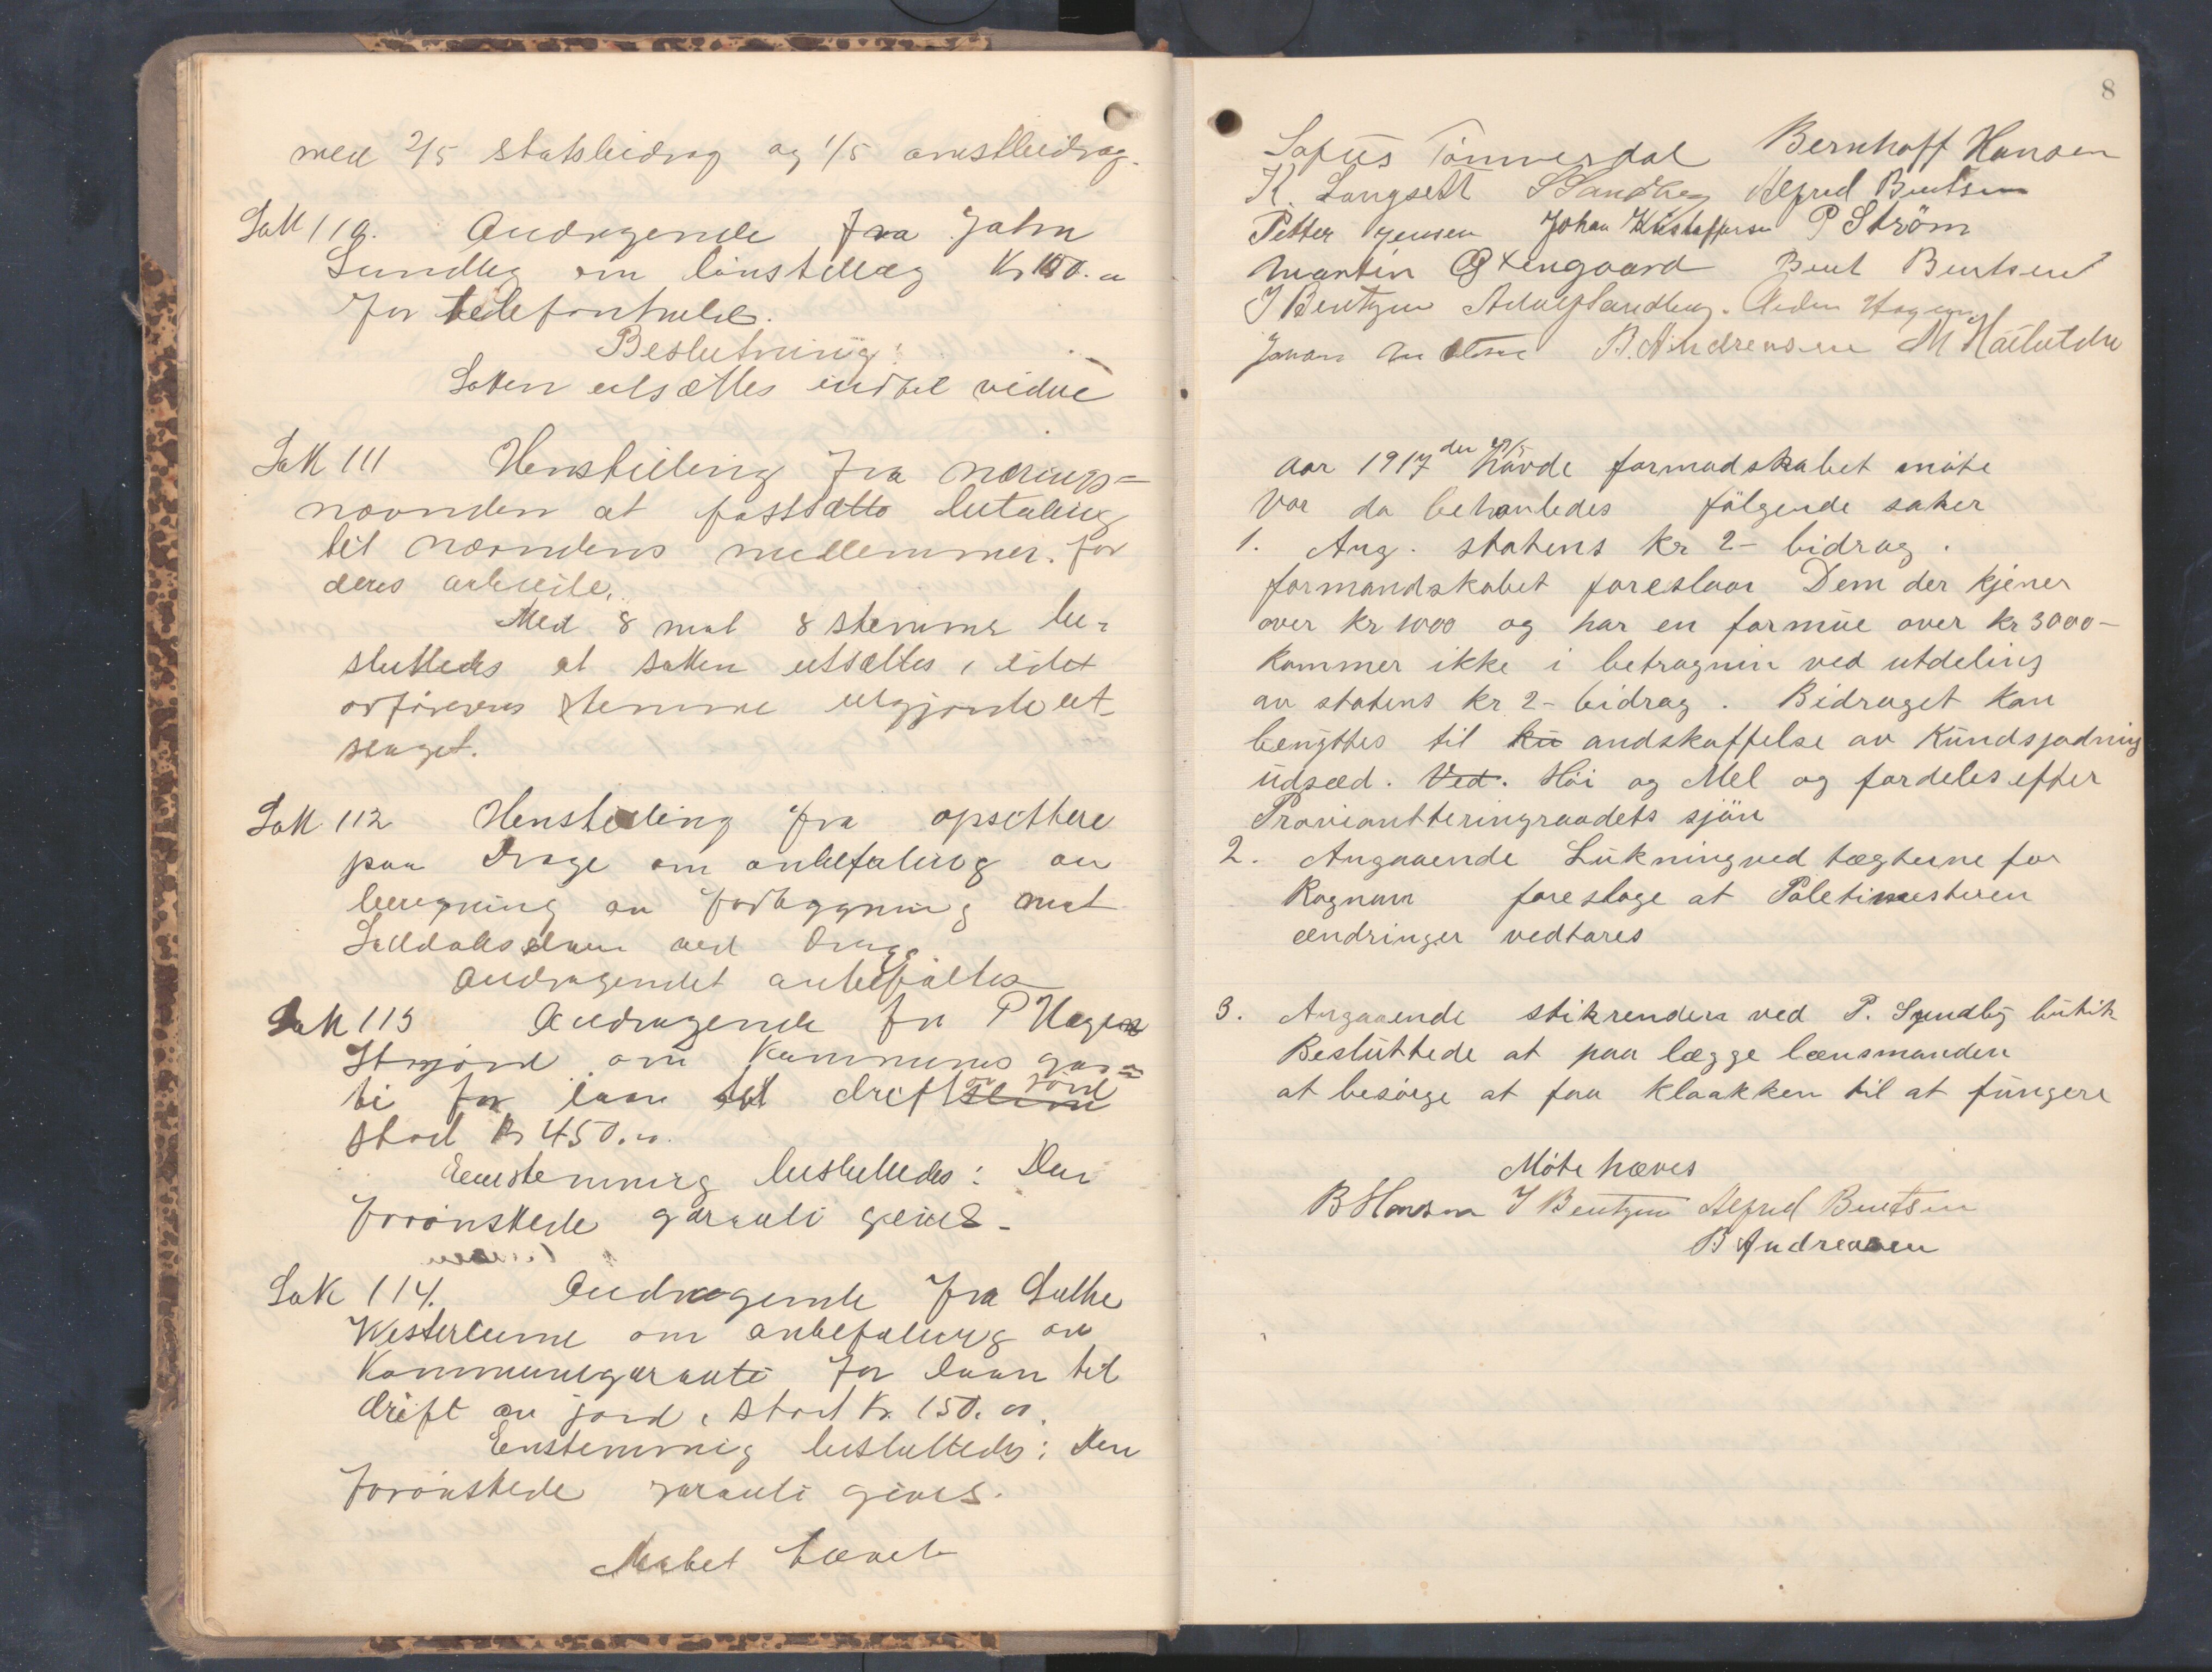 med 2/5 statsbidrag og 1/5 amtsbidrag.
Sak 110. Andragende fra Jahn
Sundby om lönstillæg Kr 100.00
for telefonstræk.
Beslutning:
Saken utsættes indtil videre
Sak 111 Henstilling fra nærings-
nævnden at fastsætte betaling
til nævndens medlemmer for
deres arbeide.
Med 8 mot 8 stemmer be-
sluttedes at saken utsættes, idet
ordförerens stemme utgjorde ut-
slaget.
Sak 112 Henstilling fra opsittere
paa Drage om anbefaling av
beregning av forbygning mot
Saltdalselven ved Drage
Andragendet anbefaltes
Sak 113 Andragende fra P Hagen
Storjord om Kommunes garan-
ti for laan til drift av jord
stort Kr 450.00.
Eenstemmig besluttedes: Den
forönskede garanti gives.
Sak 114. Andragende fra
Westerlume om anbefaling av
Kommunegaranti for laan til
drift av jord, stort Kr. 150.00.
Enstemmig besluttedes: Den
forönskede garanti gives.
Mötet hævet
8
Sofus Tönnerdal Bernhoff Hansen
K. Langsett S Sandberg Alfred Bentsen
Petter Jensen Johan Kristoffersen P Ström
Martin Oxengaard Bent Bentsen
J Bentzen Adolf Sandberg. Peder Hagen
B. Andreassen M
Aar 1917 den hævde formadskabet möte
Vor da behanledes fölgende saker
1. Ang. statens kr 2- bidrag.
formandskabet foreslaar Dem der tjener
over kr 1000 og har en formue over kr 3000-
kommer ikke i betragnin ved utdeling
av statens kr 2- bidrag. Bidraget kan
benyttes til ku andskaffelse av Kundsjodning
udsæd. Ved. Höi og Mel og fordeles efter
Provianttteringraadets sjön
2. Angaaende Lukningved tægterne for
Rognan foresloge at Poletimesteren
ændringer vedtares
3. Angaaende stikrenden ved P. Sundby butik
Besluttede at paa lægge lænsmanden
at besörge at faa kloakken til at fungere
Möte hæves
B Hansen J Bentzen Alfred Bentsen
B Andreassen